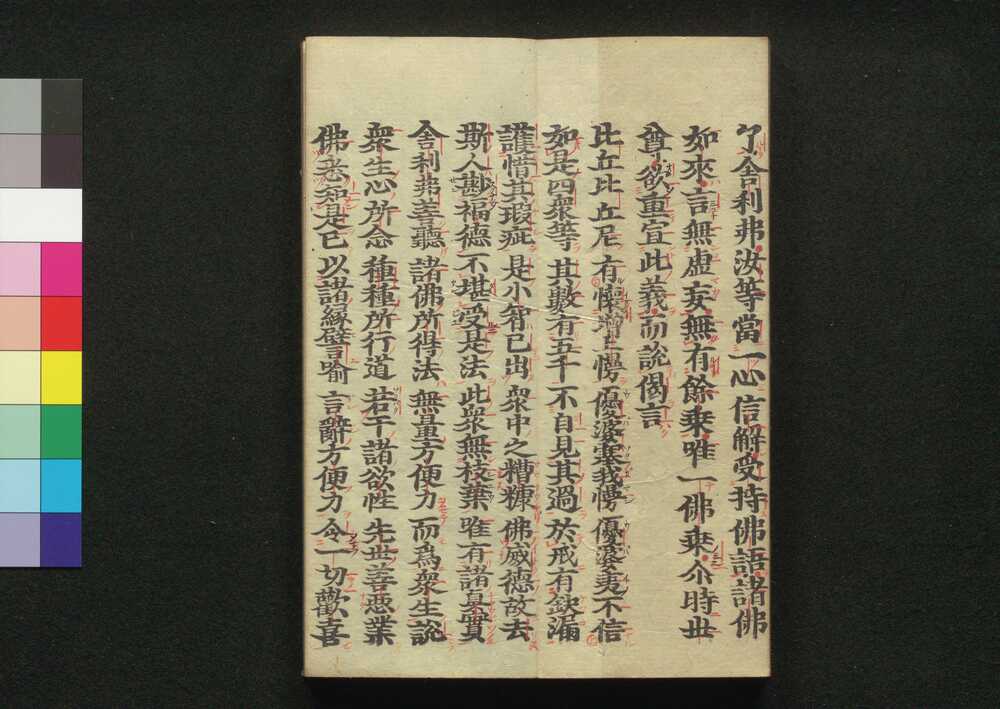 了舎利弗汝等當一心信解受持佛語諸佛
如來言無虚妄無有餘乗唯一佛乗尒時世
尊欲重宣此義而説偈言
比丘比丘尼 有懐増上慢 優婆塞我慢 優婆夷不信
如是四衆等 其數有五千 不自見其過 於戒有缺漏
護惜其瑕疵 是小智已出 衆中之糟糠 佛威徳故去
斯人尠福徳 不堪受是法 此衆無枝葉 唯有諸真實
舎利弗善聽 諸佛所得法 無量方便力 而爲衆生説
衆生心所念 種種所行道 若干諸欲性 先世善悪業
佛悉知是已 以諸縁譬喩 言辭方便力 令一切歡喜